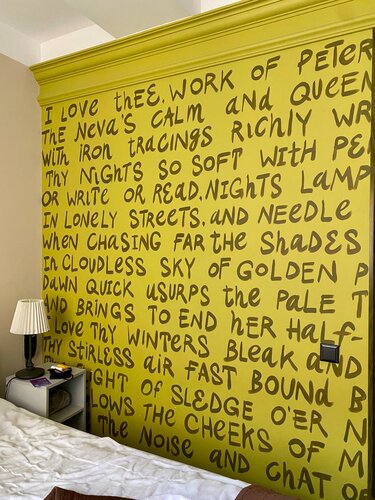 I LOVE thEE, WORK OF PETER
THE NEVA'S CALM AND QUEEN
With iRON tRACiNGS RiCHLY WR
THY NiGHTS SO SOFT WiTH PE
OR WRiTE OR READ, NiGHTS LAMP
IN LONELY STREETS, AND NEEDLE
WHEN CHASiNG FAR the SHADES
IN CLOUDLESS SKY OF GOLDEN P
DAWN QUiCK USURPS the PALE T
AND BRiNGS TO END HER HALF-
LOVE THY WiNTERS BLEAK AND
THY StiRLESS AiR FAST BOUND B
GHT OF SLEDGE O'ER N
LOWS THE CHEEKS OF M
THE NOiSE AND CHAT OF